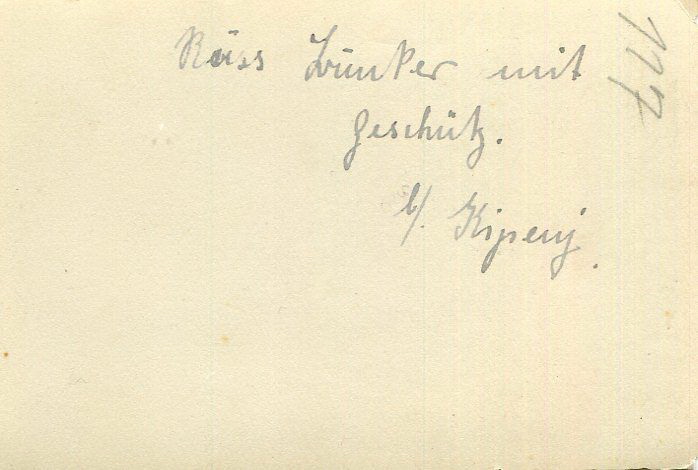 Russ Bunker mit
Geschütz.
b/. Kipenj.
117